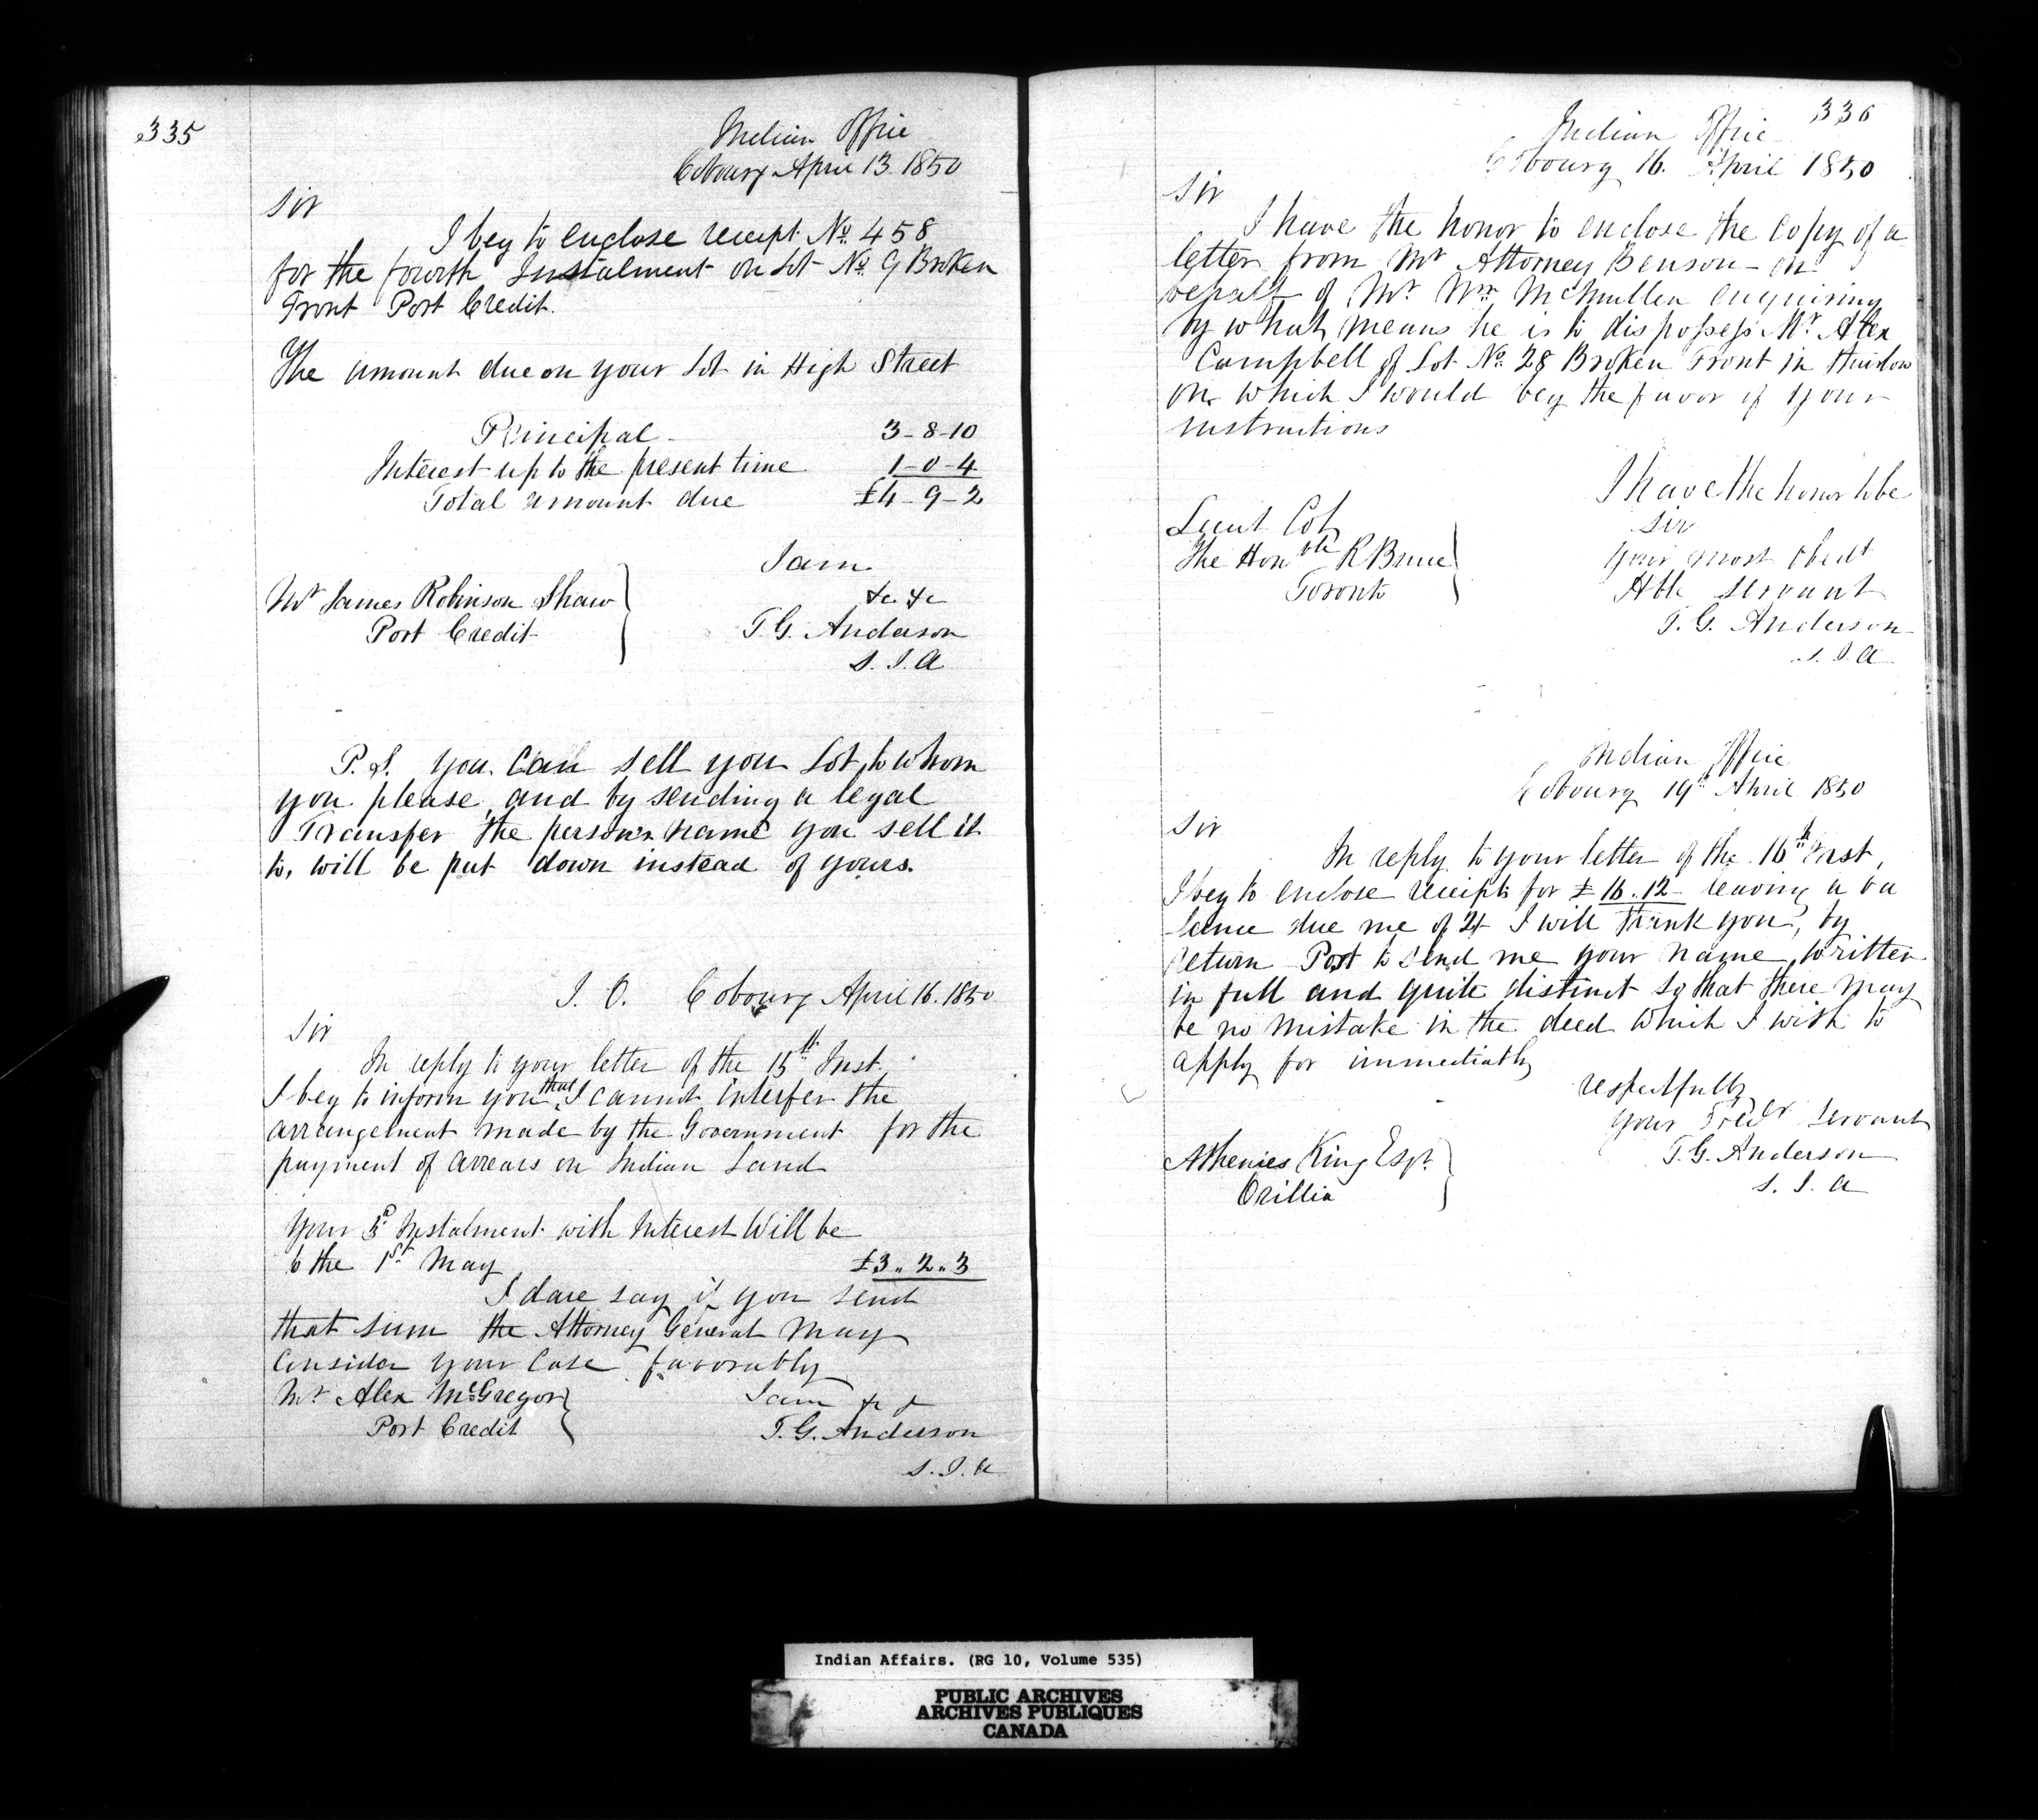 335
Indian Office
Cobourg April 13. 1850
Sir
I beg to enclose receipt No. 458
for the fourth Instalment on Lot No. 9 Broken
Front Port Credit.
The amount due on your Lot in High Street
Principal - 3-8-10
Interest up to the present time 1-0-4
Total amount due £4-9-2
I am
&c &c
Mr James Robinson Shaw
Port Credit
T. G. Anderson
S. I. A
P.S. you can sell you Lot, to whom
you please, and by sending a legal
Transfer the persons name you sell it
to, will be put down instead of yours.
I. O. Cobourg April 16. 1850
Sir
In reply to your letter of the 15th Inst.
I beg to inform you that I cannot interfer the
arrangement made by the Government for the
payment of arrears on Indian Land
Your Instalment with Interest Will be
to the 1st May £3.. 2.. 3
I dare say if you send
that sum the Attorney General May
Consider your Case favorably
Mr Alex McGregor
Port Credit
I am &c &
T. G. Anderson
S. I. A
336
Indian Office
Cobourg 16. April 1850
Sir
I have the honor to enclose the Copy of a
letter from Mr Attorney Benson - on
behalf of Mr Wm McMullen enquiring
by what means he is to dispossess Mr Alex
Campbell of Lot No. 28 Broken Front in Thurlow
on which I would beg the favor of your
instructions
I have the honor to be
Sir
Your most obedt
Hble Servant
T. G. Anderson
S. I. A
Lieut Col
The Honble R Bruce
Toronto
Indian Office
Cobourg 19th April 1850
Sir
In reply to your letter of the 16th Inst,
I beg to enclose receipts for £ 16.12- leaving a ba
lance due me of I will thank you, by
return Post to send me your name written
in full and quite distinct so that there may
be no mistake in the deed which I wish to
apply for immediatly
respectfully
Your Servant
T. G. Anderson
S. I. A
Athenies King Esqr.
Orillia
Indian Affairs. (RG 10, Volume 535)
PUBLIC ARCHIVES
ARCHIVES PUBLIQUES
CANADA